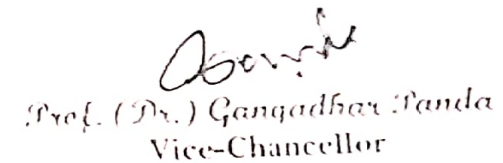 Prof. (Dr.) Gangadhar Panda
Vice-Chancellor